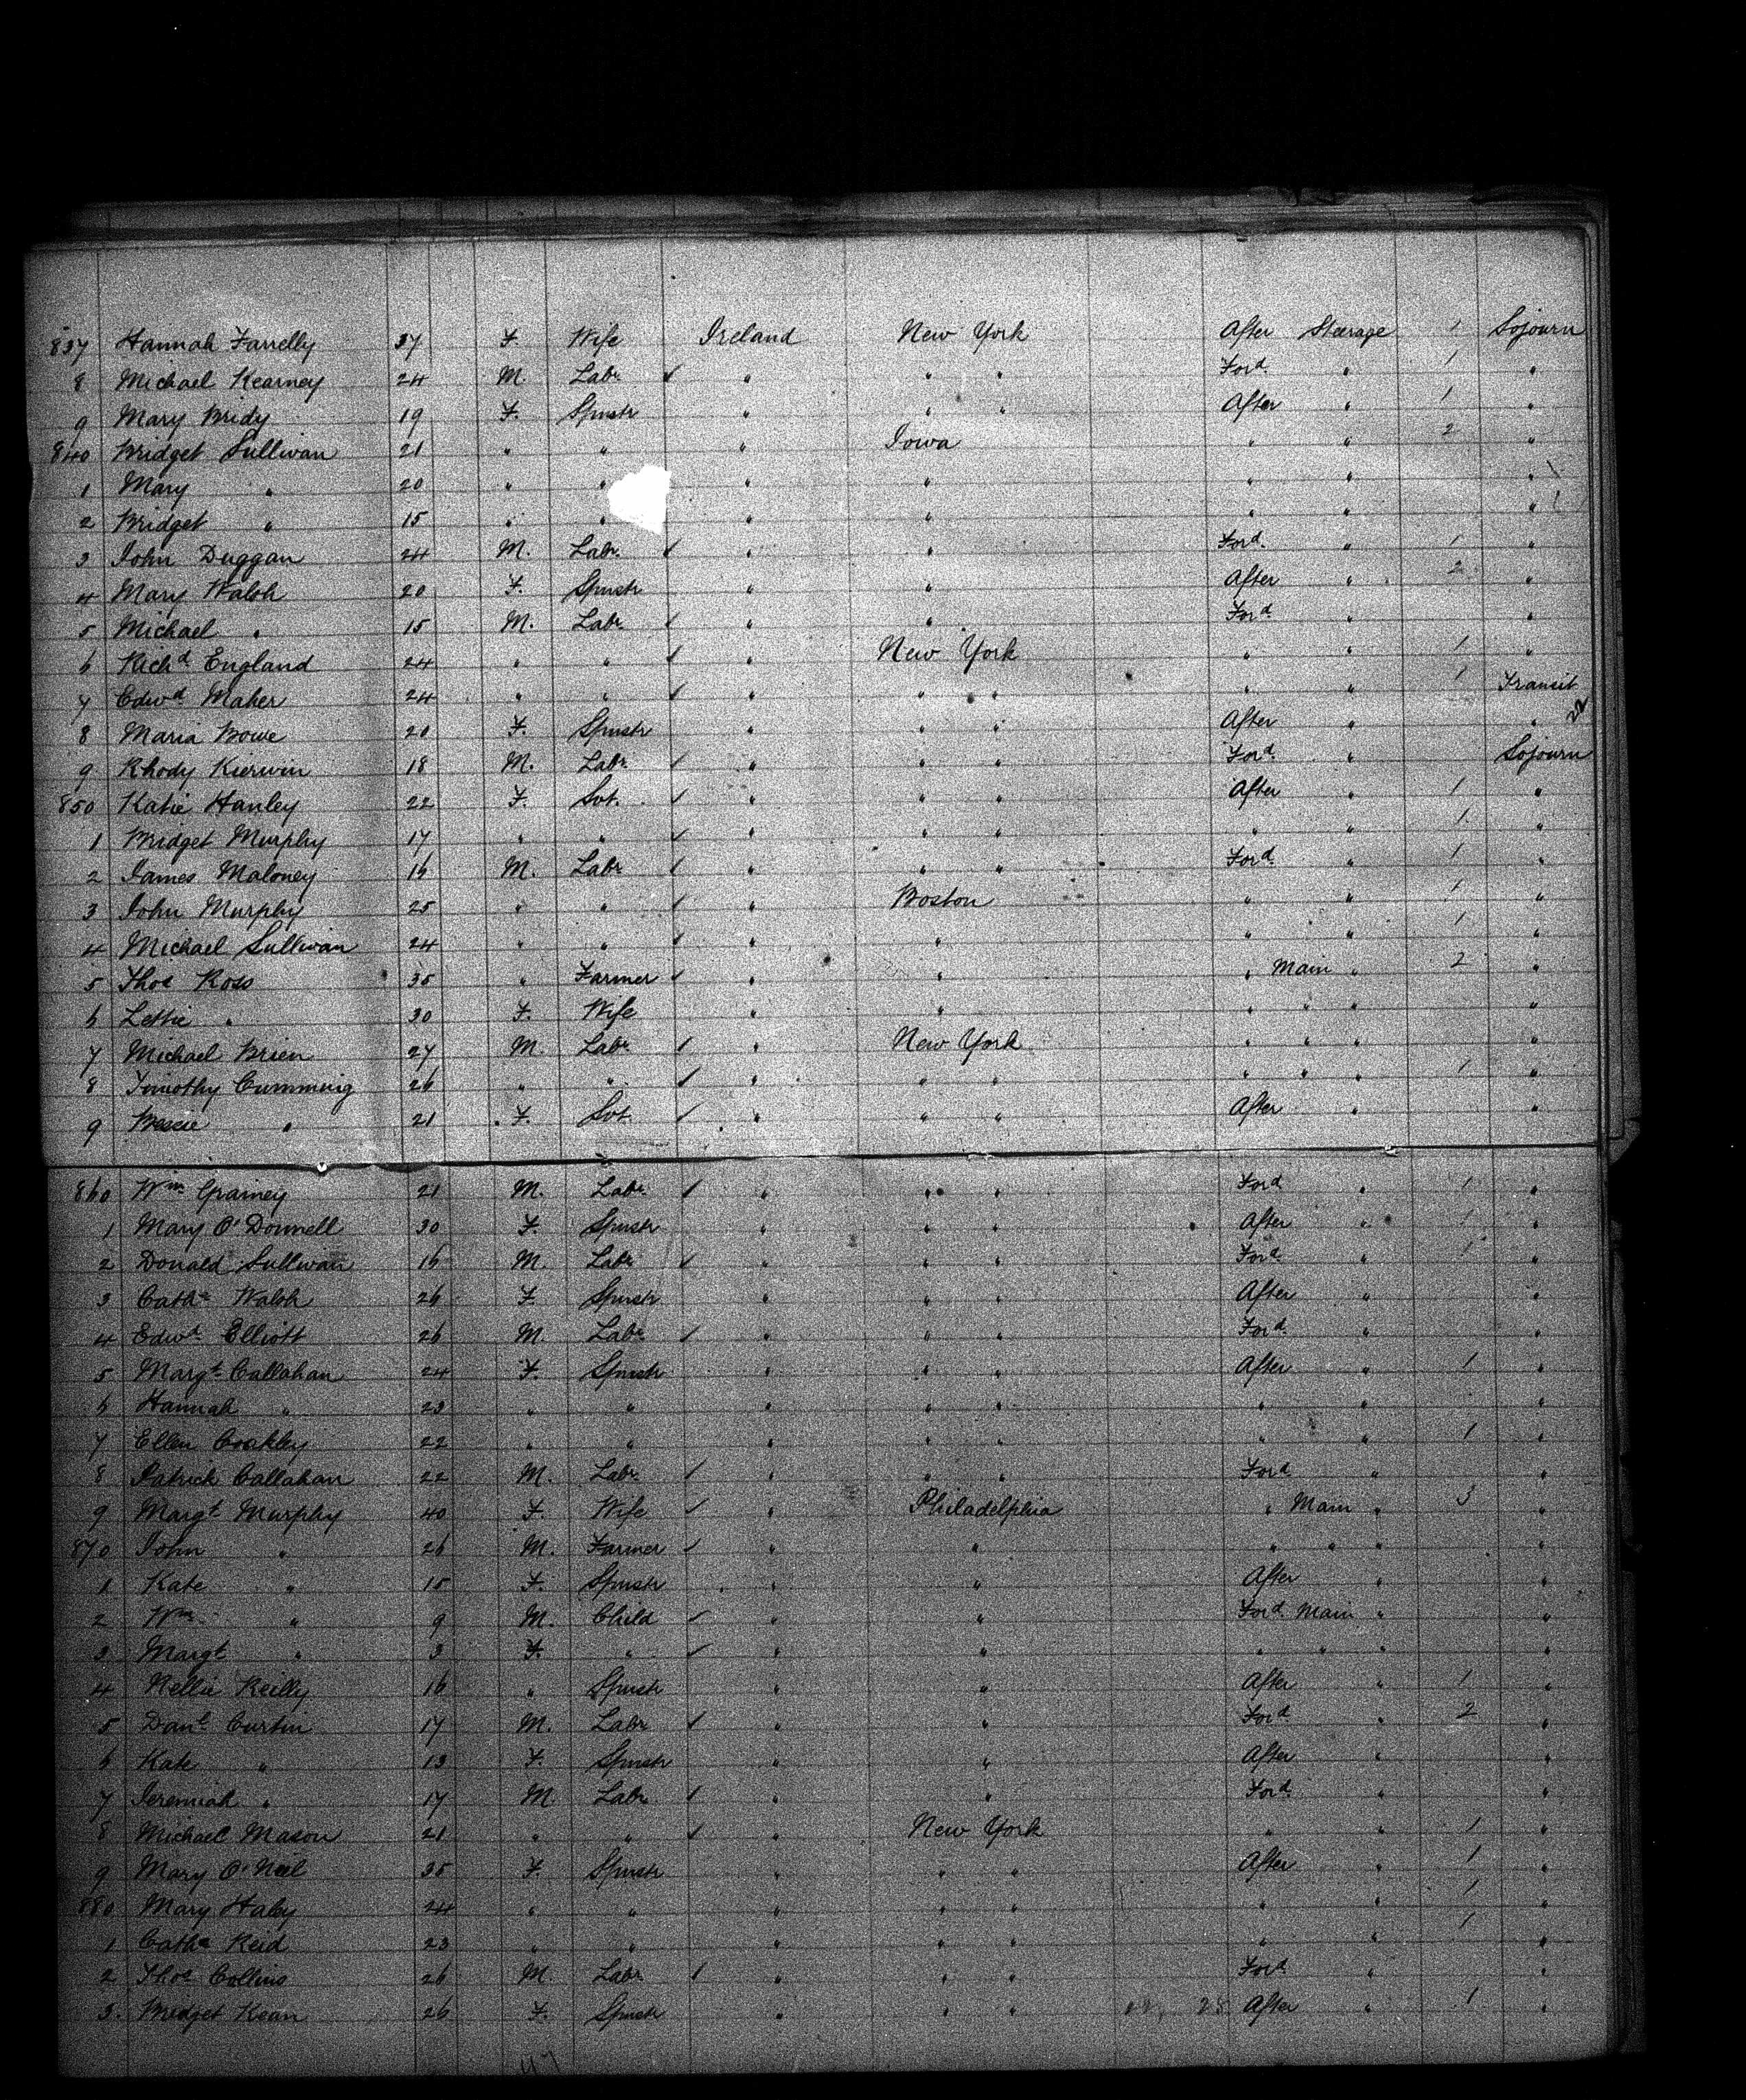 837 Hannah Farrelly 37 F. Wife Ireland New York After Steerage 1 Sojourn
8 Michael Kearney 24 M. Labr ✓ " " " Ford " 1 "
9 Mary Bridy 19 F. Spnstr " " " After " 1 "
840 Bridget Sullivan 21 " " " Iowa " " 2 "
1 Mary " 20 " " " " " " "
2 Bridget " 15 " " " " " " "
3 John Duggan 24 M. Labr ✓ " " Ford " 1 "
4 Mary Walsh 20 F. Spnstr " " After " 2 "
5 Michael " 15 M. Labr ✓ " " Ford " "
6 Richd England 24 " " ✓ " New York " " 1 "
7 Edwd Maher 24 " " ✓ " " " " " 1 Transit
8 Maria Bowe 20 F. Spnstr " " " After " " 22
9 Rhody Kierwin 18 M. Labr ✓ " " " Ford " Sojourn
850 Katie Hanley 22 F. Svt. ✓ " " " After " 1 "
1 Bridget Murphy 17 " " ✓ " " " " " 1 "
2 James Maloney 16 M. Labr ✓ " " " Ford " 1 "
3 John Murphy 25 " " ✓ " Boston " " 1 "
4 Michael Sullivan 24 " " ✓ " " " " 1 "
5 Thos Ross 35 " Farmer ✓ " " " Main " 2 "
6 Lettie " 30 F. Wife " " " " " "
7 Michael Brien 27 M. Labr ✓ " New York " " " "
8 Timothy Cumming 26 " " ✓ " " " " " " 1 "
9 Bessie " 21 F. Svt. ✓ " " " After " "
860 Wm Grainey 21 M. Labr ✓ " " " Ford " 1 "
1 Mary O'Donnell 30 F. Spnstr " " " After " 1 "
2 Donald Sullivan 16 M. Labr ✓ " " " Ford " 1 "
3 Cathe Walsh 26 F. Spnstr " " " After " "
4 Edwd Elliott 26 M. Labr ✓ " " " Ford " "
5 Margt Callahan 24 F. Spnstr " " " After " 1 "
6 Hannah " 23 " " " " " " " "
7 Ellen Coakley 22 " " " " " " " 1 "
8 Patrick Callahan 22 M. Labr ✓ " " " Ford " "
9 Margt Murphy 40 F. Wife ✓ " Philadelphia " Main " 3 "
870 John " 26 M. Farmer ✓ " " " " " "
1 Kate " 15 F. Spnstr " " After " "
2 Wm " 9 M. Child ✓ " " Ford Main " "
3 Margt " 3 F. " ✓ " " " " " "
4 Nellie Reilly 16 " Spnstr " " After " 1 "
5 Danl Curtin 17 M. Labr ✓ " " Ford " 2 "
6 Kate " 13 F. Spnstr " " After " "
7 Jeremiah " 17 M Labr ✓ " " Ford " "
8 Michael Mason 21 " " ✓ " New York " " 1 "
9 Mary O'Neil 35 F. Spnstr " " " After " 1 "
880 Mary Haley 24 " " " " " " " 1 "
1 Cathe Reid 23 " " " " " " " 1 "
2 Thos Collins 26 M. Labr ✓ " " " Ford " "
3. Bridget Kean 26 F. Spnstr " " " 28 After " 1 "